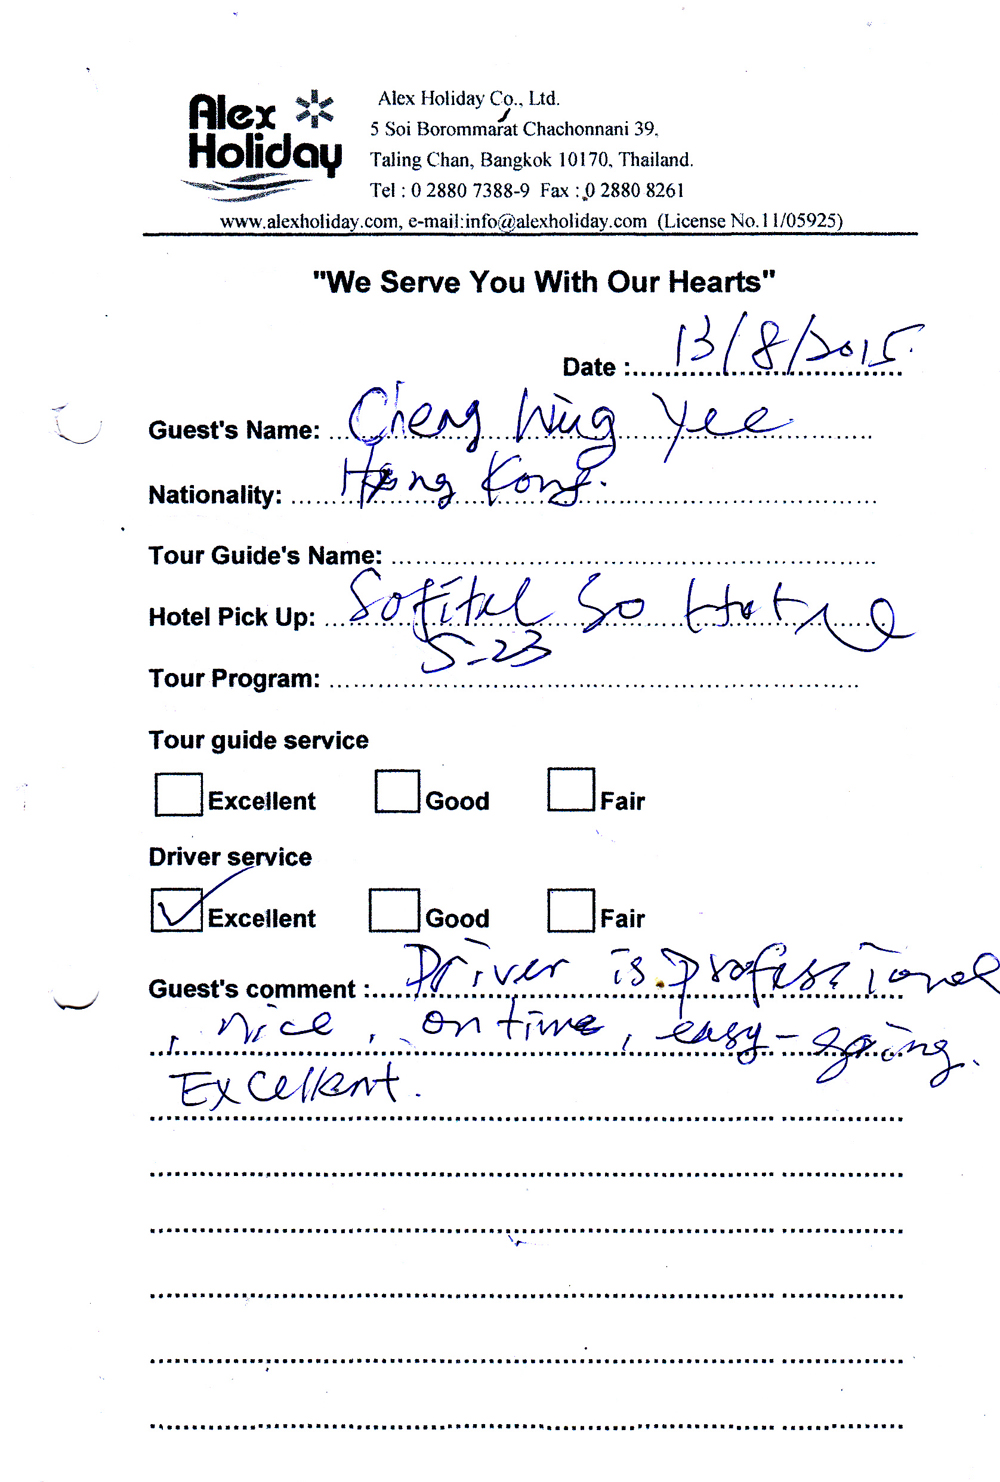 Alex Holiday
Alex Holiday Co., Ltd.
5 Soi Borommarat Chachonnani 39,
Taling Chan, Bangkok 10170, Thailand.
Tel : 0 2880 7388-9 Fax : 0 2880 8261
www.alexholiday.com, e-mail:info@alexholiday.com (License No.11/05925)
"We Serve You With Our Hearts"
Date : 13/8/2015.
Guest's Name: Cheng Wing Yee
Nationality: Hong Kong.
Tour Guide's Name:
Hotel Pick Up: Sofitel So Hotel
5-23
Tour Program:
Tour guide service
Excellent Good Fair
Driver service
Excellent Good Fair
Guest's comment : Driver is professional
, nice, on time, easy-going.
Excellent.